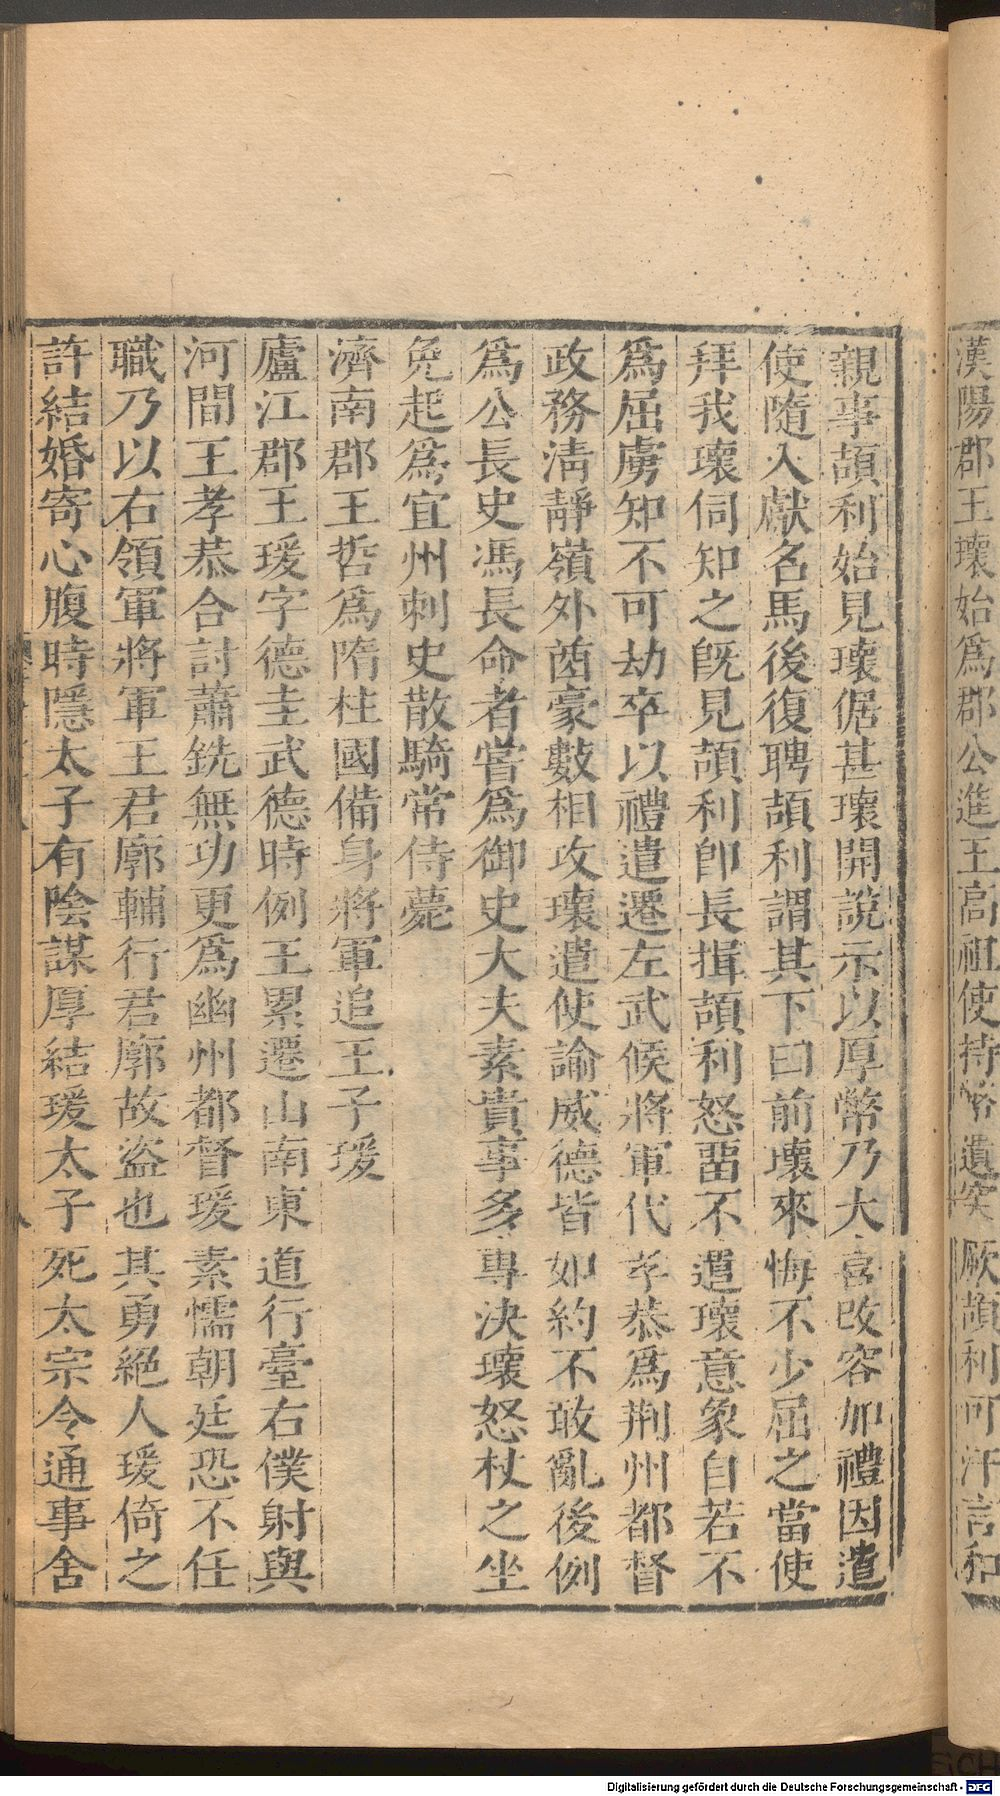 漢陽郡王瓌始爲郡公進王高祖使持幣遺突厥頡利可汗言和
親事頡利始見瓌倨甚瓌開說示以厚幣乃大喜改容加禮因遣
使隨入獻名馬後復聘頡利謂其下曰前瓌來悔不少屈之當使
拜我瓌伺知之旣見頡利卽長揖頡利怒畱不遣瓌意象自若不
爲屈虜知不可劫卒以禮遣遷左武候將軍代孝恭爲荆州都督
政務淸靜嶺外酋豪數相攻瓌遣使諭威德皆如約不敢亂後例
爲公長史馮長命者嘗爲御史大夫素貴事多專決瓌怒杖之坐
免起爲宜州刺史散騎常侍薨
濟南郡王哲爲隋柱國備身將軍追王子瑗
廬江郡王瑗字德圭武德時例王累遷山南東道行臺右僕射與
河間王孝恭合討蕭銑無功更爲幽州都督瑗素懦朝廷恐不任
職乃以右領軍將軍王君廓輔行君廓故盜也其勇絕人瑗倚之
許結婚寄心腹時隱太子有陰謀厚結瑗太子死太宗令通事舍
Digitalisierung gefördert durch die Deutsche Forschungsgemeinschaft - DFG